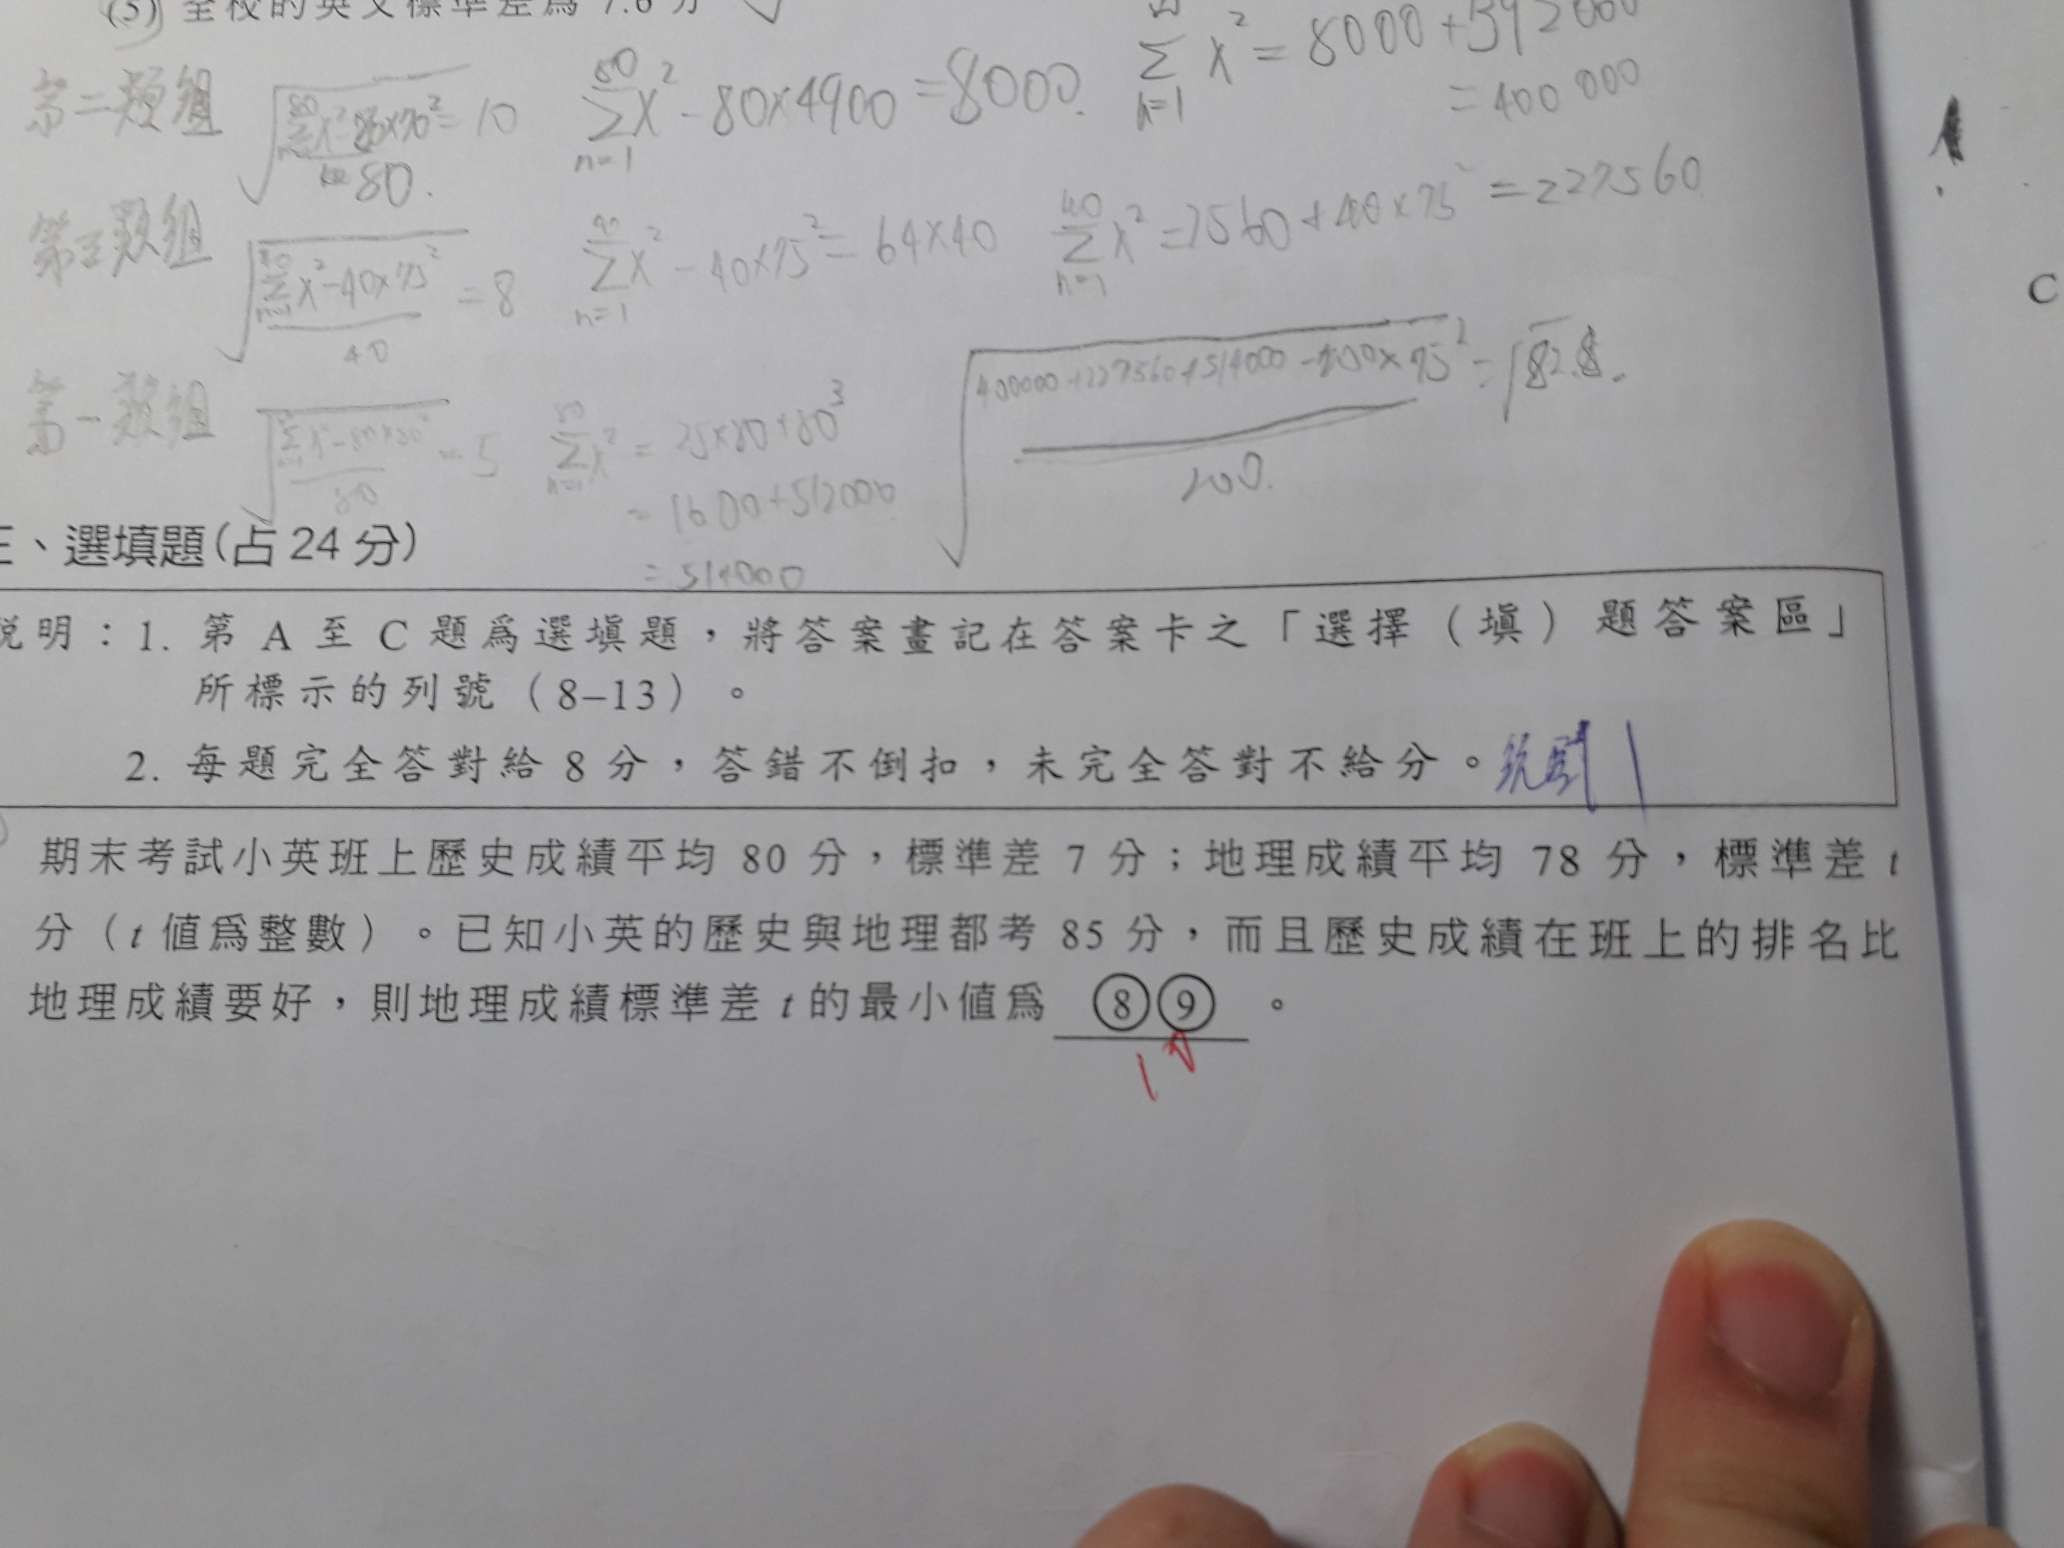 (5) 全校的英文標準差為 7.6 分
第二類組 √((Σx²-80×70²)/80) = 10 80Σn=1 x² - 80×4900 = 8000. Σn=1 x² = 8000+392000
= 400 000
第三類組 √((40Σn=1 x²-40×75²)/40) = 8 40Σn=1 x² - 40×75² = 64×40 40Σn=1 x² = 2560+40×75² = 227560
第一類組 √((Σx²-80×80²)/80) = 5 80Σn=1 x² = 25×80+80³ √((400000+227560+514000-200×75²)/200) = √82.8.
= 1600+512000
= 514000
三、選填題(占 24 分)
說明：1. 第 A 至 C 題為選填題，將答案畫記在答案卡之「選擇（填）題答案區」
所標示的列號（8–13）。
2. 每題完全答對給 8 分，答錯不倒扣，未完全答對不給分。
期末考試小英班上歷史成績平均 80 分，標準差 7 分；地理成績平均 78 分，標準差 t
分（t 值為整數）。已知小英的歷史與地理都考 85 分，而且歷史成績在班上的排名比
地理成績要好，則地理成績標準差 t 的最小值為 ⑧⑨ 。
1 0
C